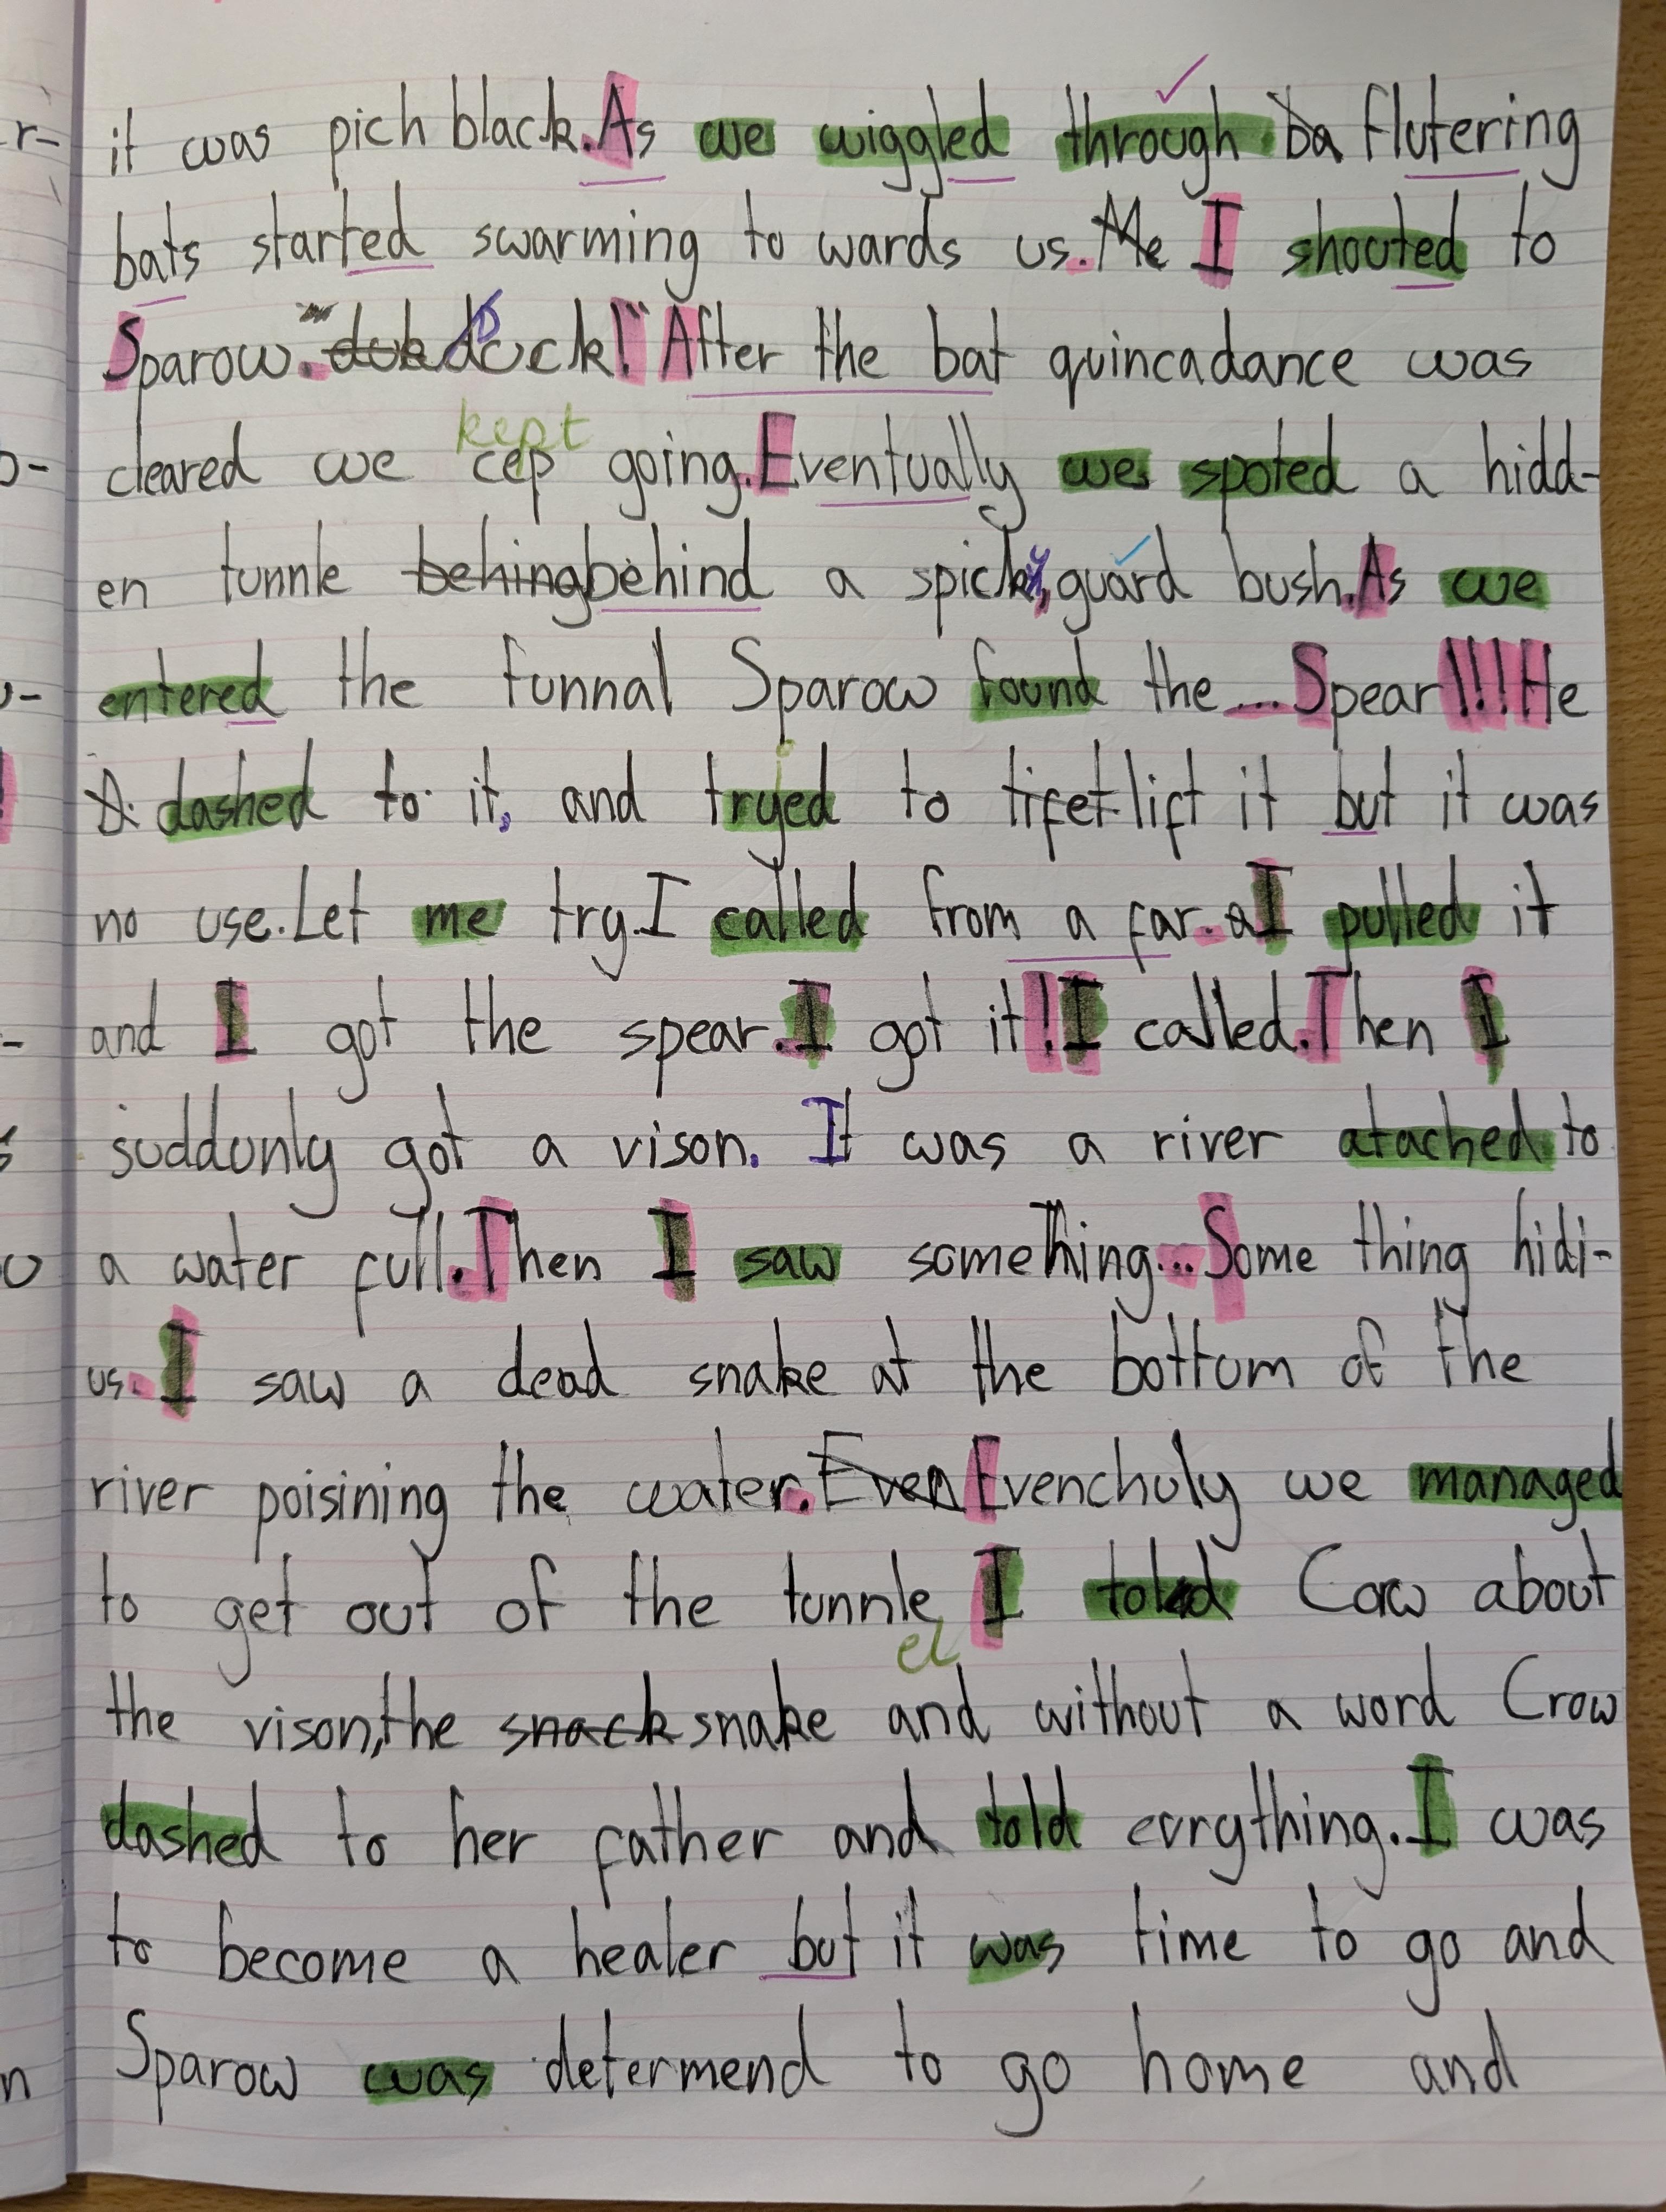 it was pich black. As we wiggled through ba flutering
bats started swarming to wards us. Me I shouted to
Sparow. "dukDuck!" After the bat quincadance was
kept
cleared we cep going. Eventually we spoted a hidd-
en tunnle behingbehind a spicky, guard bush. As we
entered the tunnal Sparow found the... Spear!!! He
i
dashed to it, and tryed to lift it but it was
no use. Let me try. I called from a far. I pulled it
and I got the spear. I got it! I called. Then I
suddonly got a vison. It was a river atached to
a water full. Then I saw something... Some thing hidi-
us. I saw a dead snake at the bottom of the
river poisining the water. Even Evenchuly we managed
to get out of the tunnle I told Corw about
el
the vison, the snack snake and without a word Crow
dashed to her father and told evrything. I was
to become a healer but it was time to go and
Sparow was determend to go home and